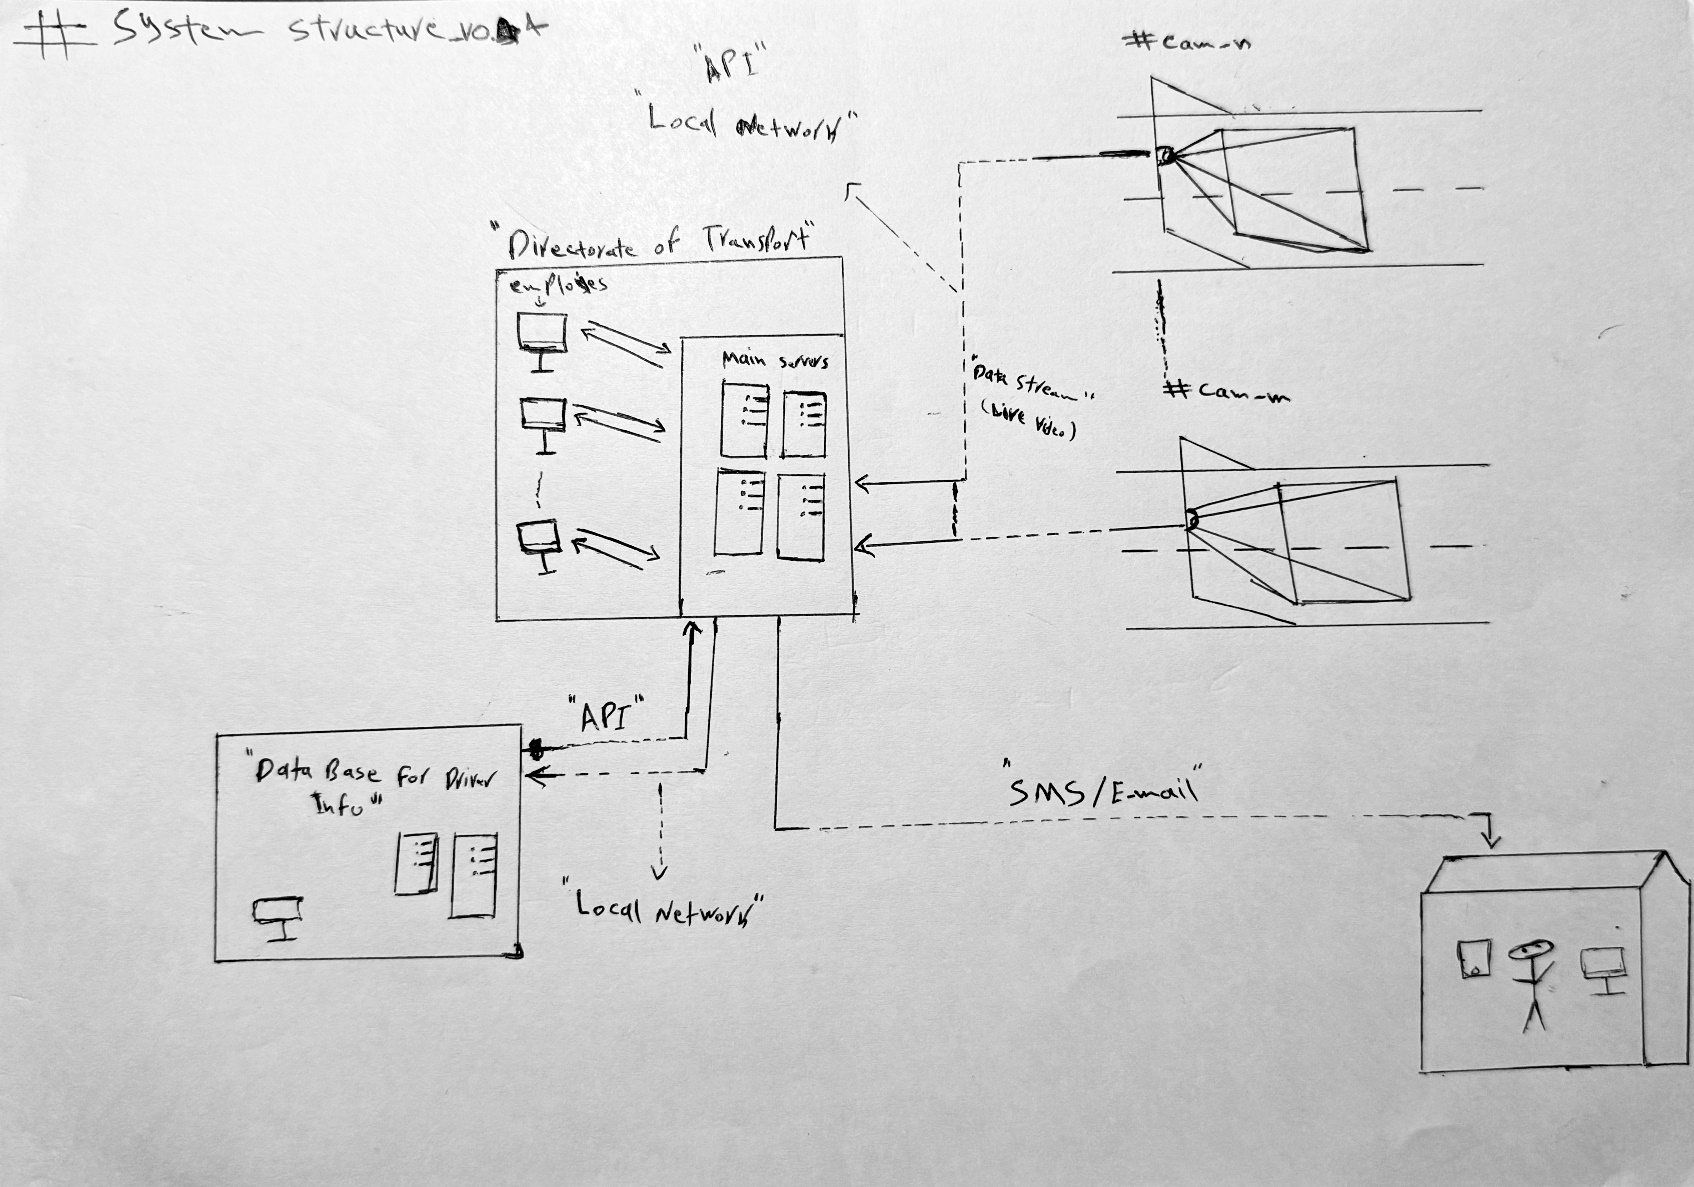 # System structure_v0.4
"API"
"Local Network"
#cam-n
"Directorate of Transport"
employes
Main servers
"Data Stream"
(Live Video)
#cam-m
"API"
"Data Base For Driver
Info"
"Local Network"
"SMS/E-mail"